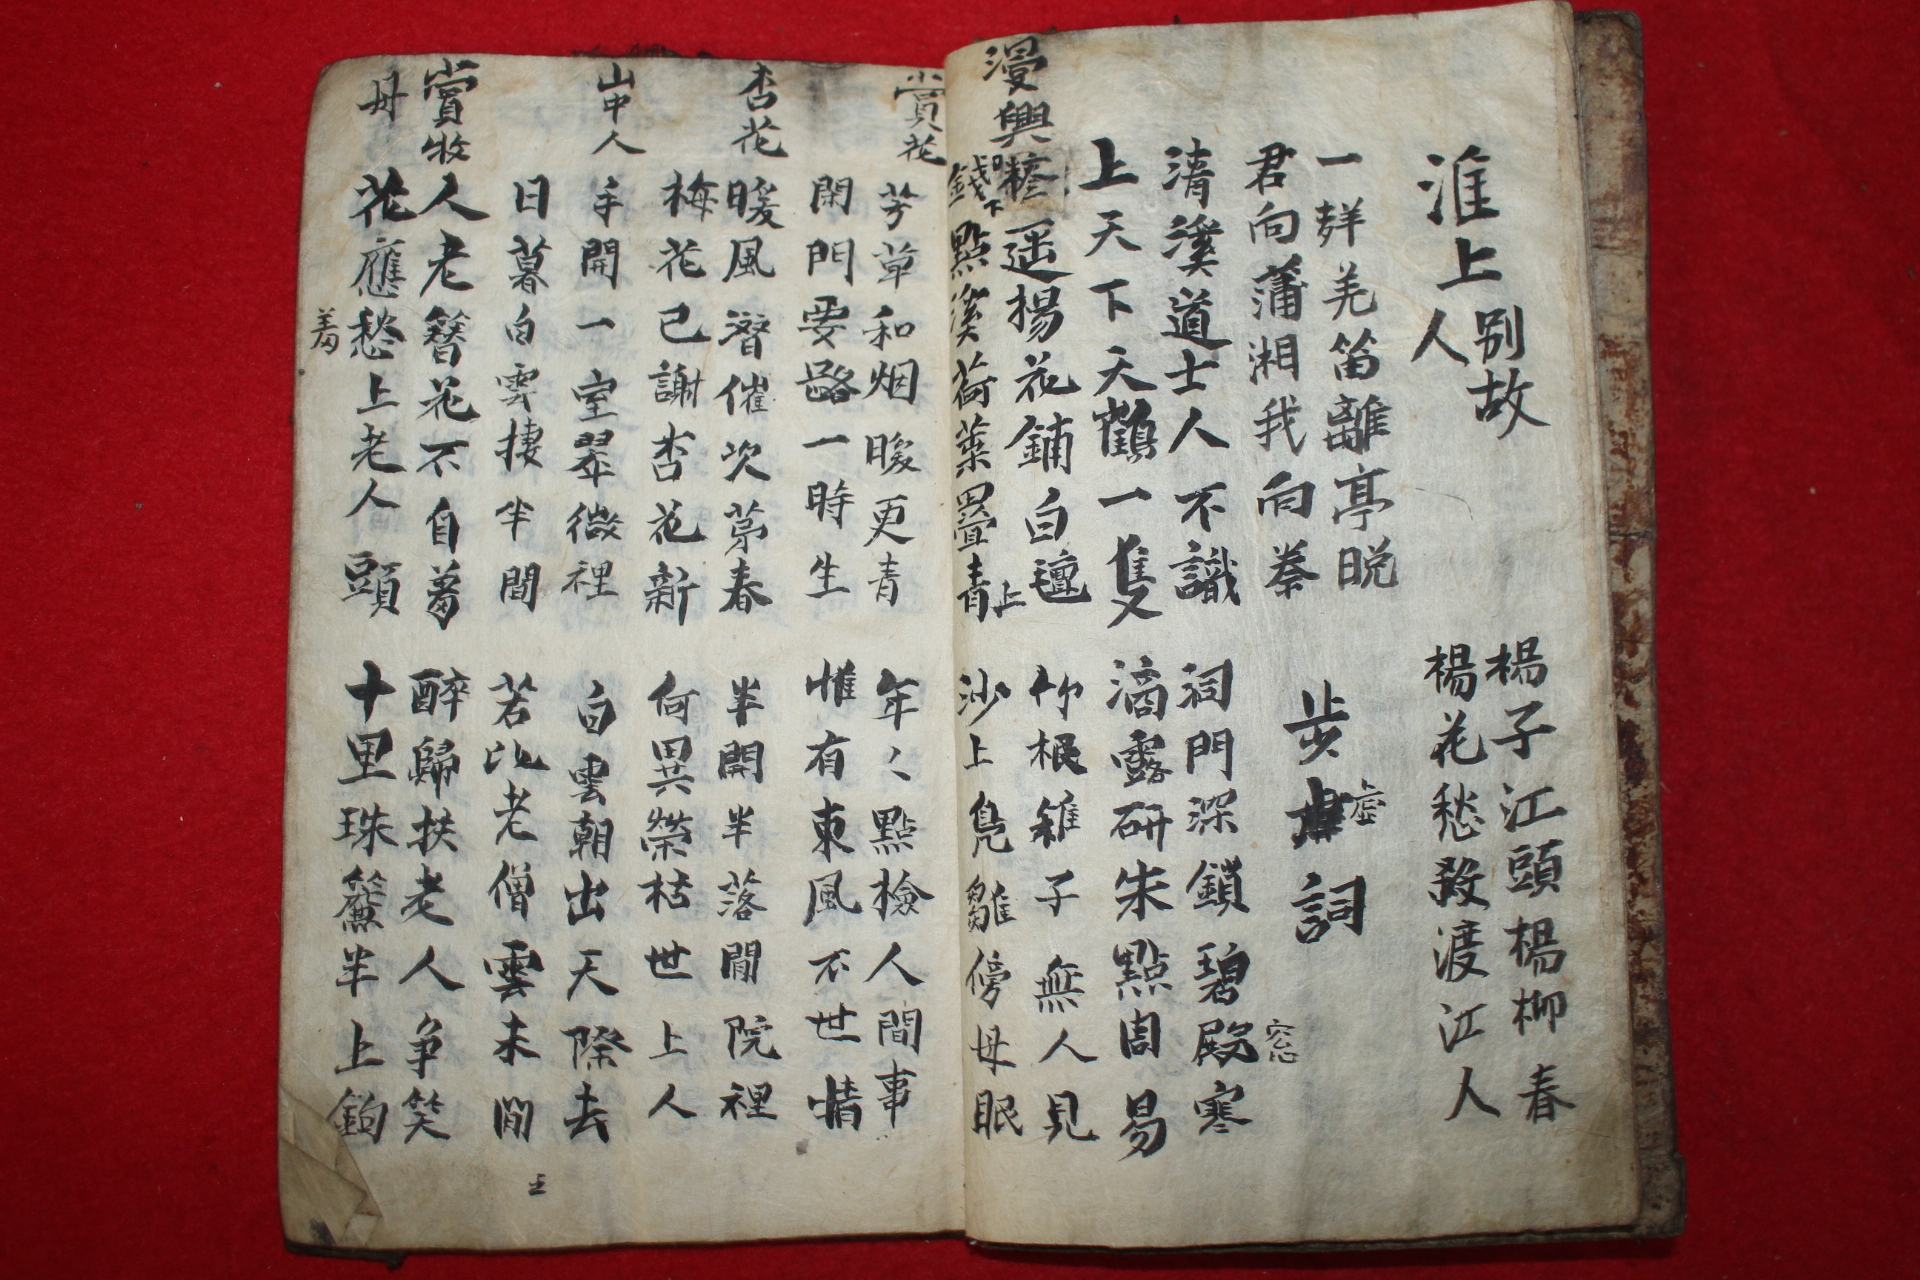 淮上別故人
楊子江頭楊柳春
楊花愁殺渡江人
一篴羌笛離亭晚
君向蒲湘我向秦
步虛詞
清溪道士人不識
上天下天鶴一隻
洞門深鎖碧窓寒
滴露研朱點周易
漫興
糝逕揚花鋪白氈
點溪荷葉疊青錢
竹根稚子無人見
沙上鳧雛傍母眠
賞花
芳草和烟暖更青
閑門要路一時生
年〻點檢人間事
惟有東風不世情
杏花
暖風潛催次苐春
梅花已謝杏花新
半開半落閑院裡
何異榮枯世上人
山中人
手開一室翠微裡
日暮白雲捿半間
白雲朝出天際去
若比老僧雲未閑
賞牧丹
人老簪花不自羞
花應羞上老人頭
醉歸扶老人爭笑
十里珠簾半上鉤